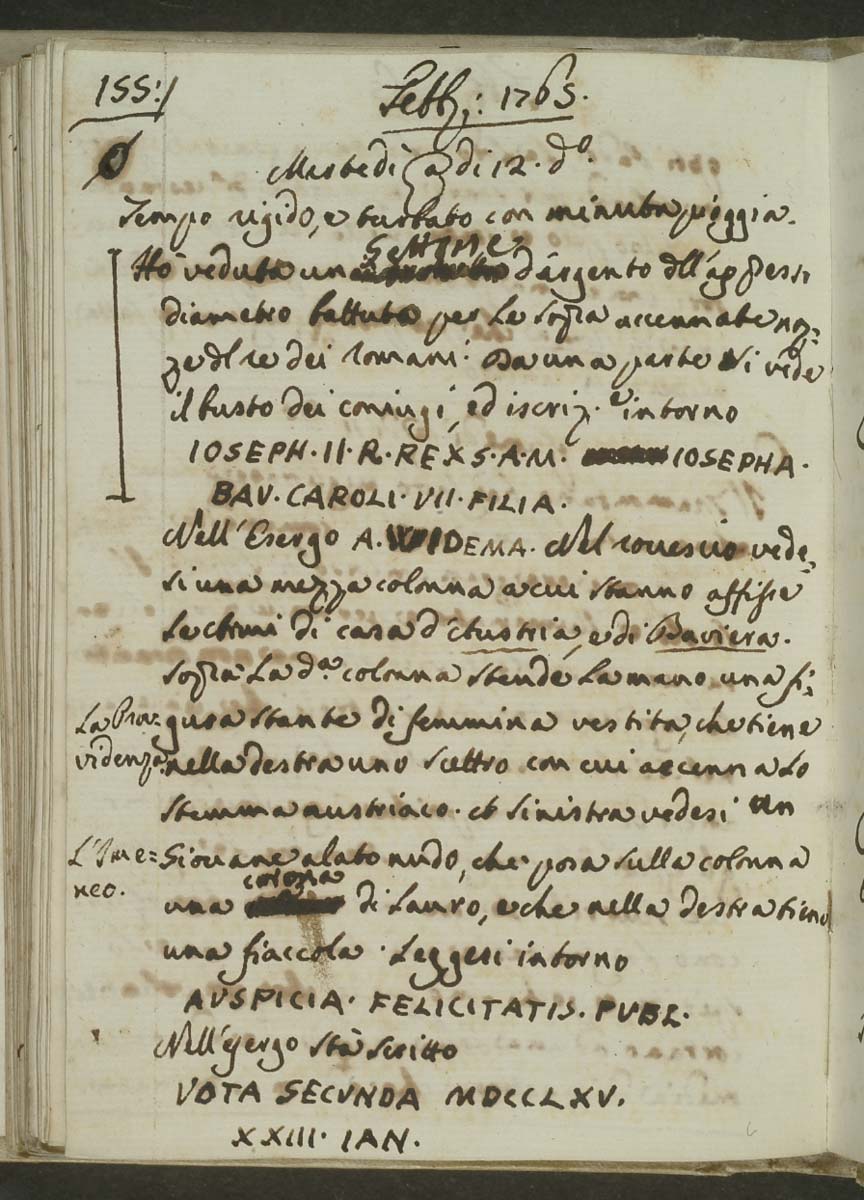 155:/
Febb.: 1765.
Martedì a dì 12. do.
Tempo rigido, e turbato con minuta pioggia.
Hò veduta una d'argento dell'appresso
diametro battuta per le sopra accennate noz=
ze del re dei romani. Da una parte si vede
il busto dei coniugi, ed iscriz.e intorno
IOSEPH. II. R. REX S. A. M. IOSEPHA.
BAV. CAROLI. VII. FILIA.
Nell'Esergo A. WIDEMA. Nel rovescio vede=
si una mezza colonna a cui stanno affisse
le armi di casa d'Austria, e di Baviera.
Sopra la da. colonna stende la mano una fi=
La Prov=
videnza.
gura stante di femmina vestita, che tiene
nella destra uno scettro con cui accenna lo
stemma austriaco. A sinistra vedesi un
L'Ime=
neo.
Giovane alato nudo, che posa sulla colonna
una corona di Lauro, e che nella destra tiene
una fiaccola. Leggesi intorno
AVSPICIA. FELICITATIS. PUBL.
Nell'esergo stà scritto
VOTA SECVNDA MDCCLXV.
XXIII. IAN.